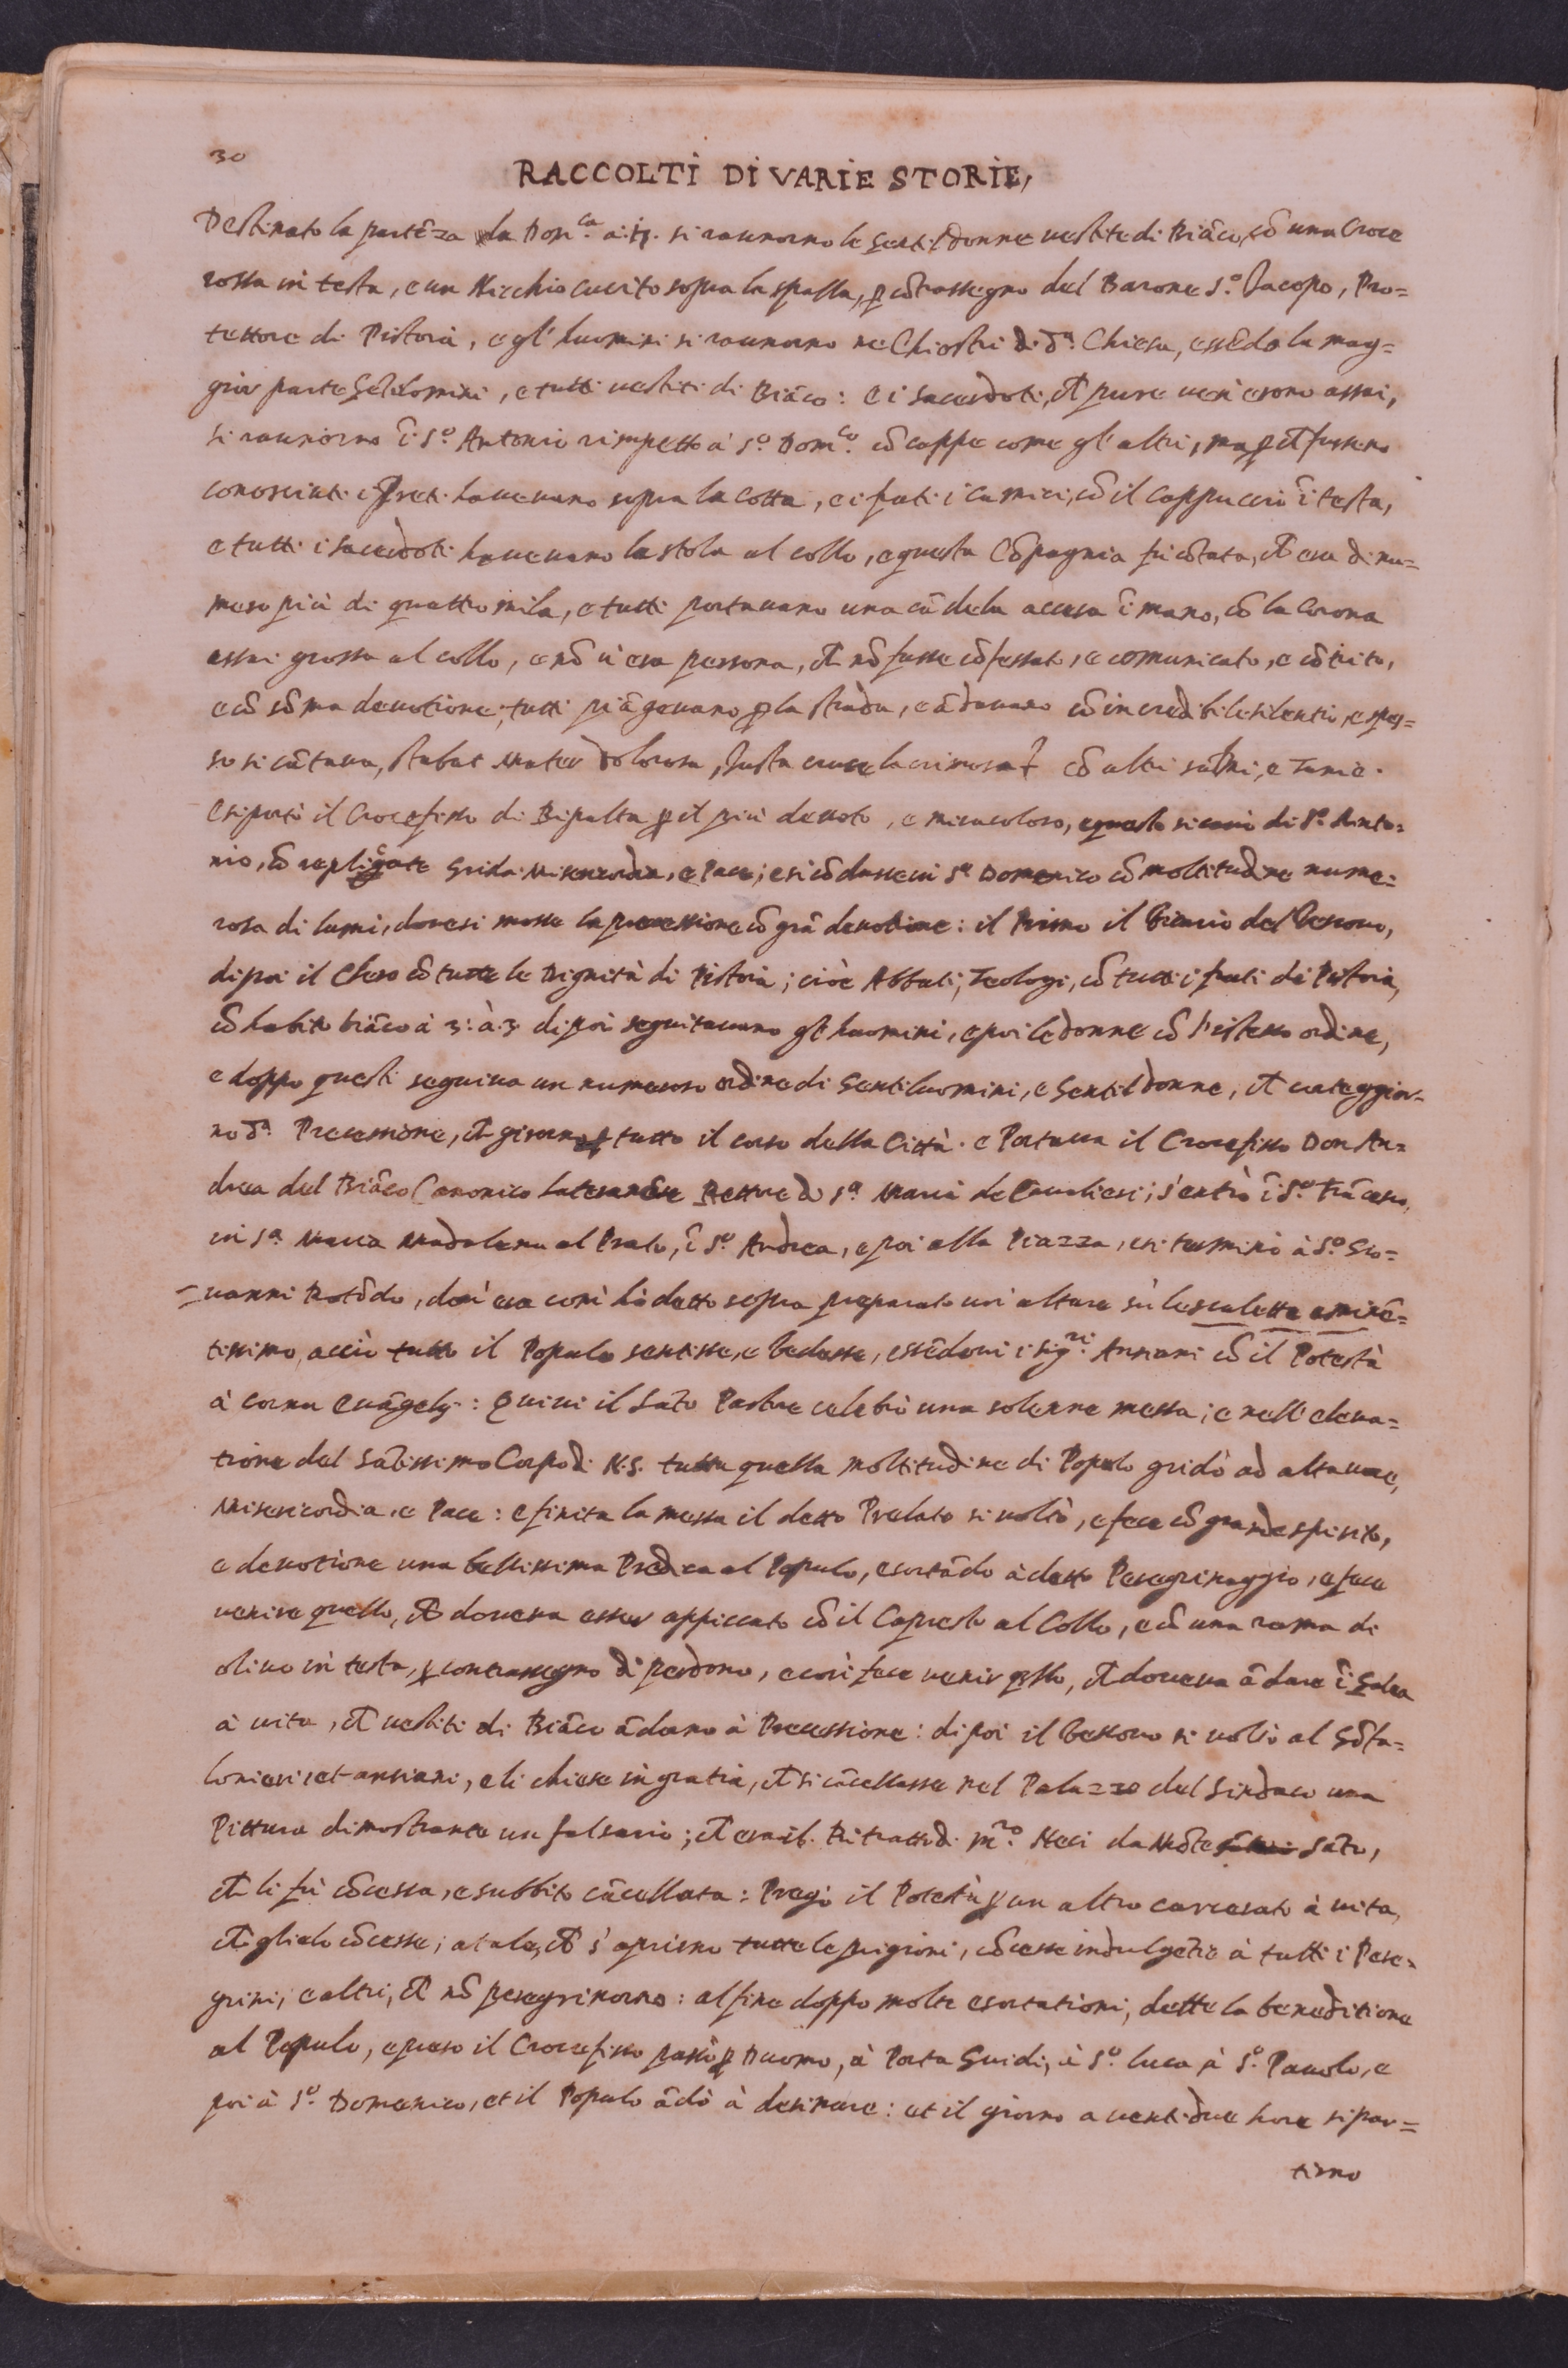 30
RACCOLTI DI VARIE STORIE,
Destinato la partẽza la Domca. a: si raunorno le Gentildonne uestite di Biãco, cõ una Croce
rossa in testa, e un Nicchio cucito sopra la spalla, p cõtrassegno del Barone So. Jacopo, Pro=
tettore di Pistoia, e gl'huomini si raunorno ne Chiostri di da. Chiesa, essẽdo la mag=
gior parte Gẽtilomini, e tutti uestiti di Biãco: e i Sacerdoti, ch pure ueri erono assai,
si raunorno ĩ So. Antonio rimpetto à So. Domco. cõ cappe come gl'altri, ma p ch fusseno
conosciuti i Preti haueuano sopra la Cotta, e i frati i camici, cõ il Cappuccio ĩ testa,
e tutti i sacerdoti haueuano la stola al collo, e questa Cõpagnia fù cõtata, ch era di nu=
mero più di quattro mila, e tutti portauano una cãdela accesa ĩ mano, cõ la Corona
assai grossa al collo, e nõ u'era persona, ch nõ fusse cõfessato, e comunicato, e cõtrito,
e cõ sõma deuotione, tutti piãgeuano p la strada, e ãdauano cõ incredibile silentio, e spes=
so si cãtaua, stabat Mater dolorosa, Justa cruce lacrimosa cõ altri salmi, e
E si portò il Crocefisso di Ripalta p il più deuoto, e miracoloso, e questo si cauò di So. Anto=
nio, cõ replicate Grida Misericordia, e Pace; e si cõdusse in Sa Domenico cõ moltitudine nume=
rosa di lumi, doue si mosse la processione cõ grã deuotione: il Primo il Vicario del Vescouo,
dipoi il Clero cõ tutte le Dignità di Pistoia; cioè Abbati, Teologi, cõ tutti i frati di Pistoia,
cõ habito biãco à 3: à: 3 dipoi seguitauano gl'huomini, e poi le donne cõ l'istesso ordine,
e doppo questi seguiua un numeroso ordine di Gentiluomini, e Gentildonne, ch corteggior=
no da. Processione, ch girorno p tutto il corso della Città. e Portaua il Crocefisso Don An=
drea del Biãco Canonico Lateranẽse Rettore di Sa Maria de Caualieri; s'entrò ĩ So. Frãcesco,
in Sa. Maria Madalena al Prato, ĩ So. Andrea, e poi alla Piazza, e si terminò à So. Gio=
uanni Rotõdo, dou'era comi hò detto sopra preparato un'altare sù le scalette eminẽ=
tissimo, acciò tutto il Popolo sentisse, e Vedesse, essẽdoui i Sigri. Anziani cõ il Potestà
à cornu Euãgelij: Quiui il Sãto Pastore celebrò una solenne messa; e nell'eleua=
tione del Sãtissimo Corpo di N.S. tutta quella moltitudine di Popolo gridò ad alta uoce,
Misericordia, e Pace: e finita la messa il detto Prelato si uoltò, e fece cõ grande spirito,
e deuotione una bellissima Predica al Popolo, esortãdo à detto Peregrinaggio, e fece
uenire quello, ch doueua esser appiccato cõ il Capresto al Collo, e cõ una rama di
oliuo in testa, p contrassegno di perdono, e così fece uenir qllo, ch doueua ãdare ĩ Galea
à uita, ch uestiti di Biãco ãdorno à Processione: dipoi il Vescouo si uoltò al Gõfa=
lonieri, et anziani, e li chiese in gratia, ch si cãcellasse nel Palazzo del Sindaco una
Pittura dimostrante un falsario; ch era il Ritratto di Mro. Neri da Mõte Sãto,
ch li fù cõcessa, e subbito cãcellata: Pregò il Potestà p un altro carcerato à uita,
ch glielo cõcesse; atale, ch s'aprirno tutte le prigioni, cõcesse indulgẽtie à tutti i Pere=
grini, e altri, ch nõ peregrinorno: al fine doppo molte esortationi, dette la beneditione
al Popolo, e preso il Crocefisso passò p Duomo, à Porta Guidi, à So. Luca, à So. Pauolo, e
poi à So. Domenico, et il Popolo ãdò à desinare: et il giorno a uentidue hore si par=
tirno